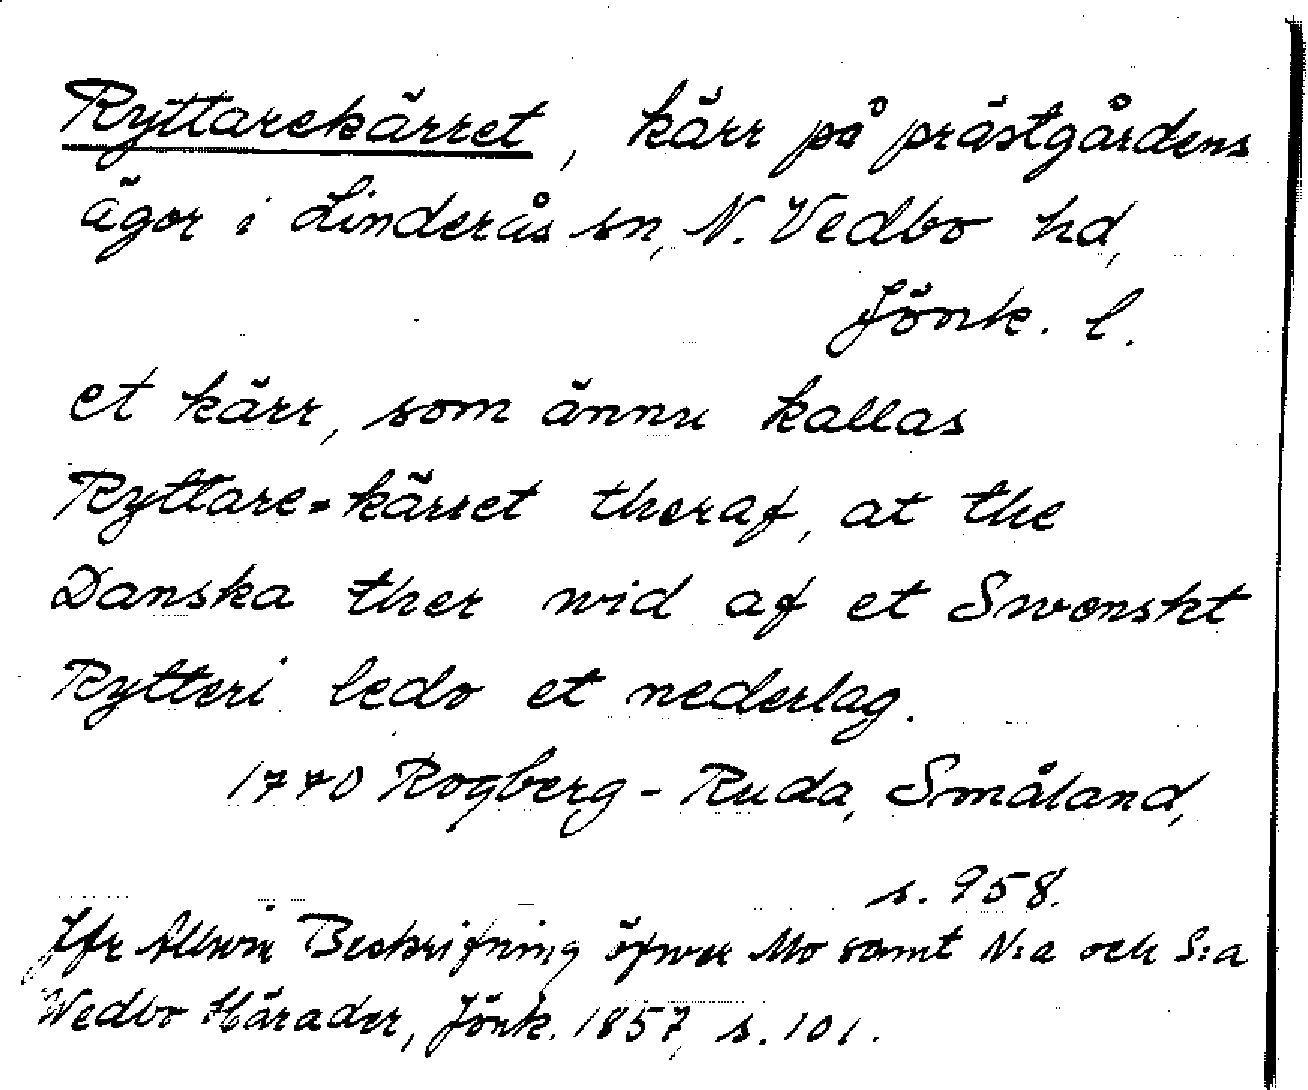 Ryttarekärret, kärr på prästgårdens
ägor i Linderås sn, N. Vedbo hd,
Jönk. l.
et kärr, som ännu kallas
Ryttare-kärret theraf, at the
Danska ther wid af et Swenskt
Rytteri ledo et nederlag.
1770 Rogberg - Ruda, Småland,
s. 958.
Jfr Allvin Beskrifning öfwer Mo samt N:a och S:a
Wedbo Härader, Jönk. 1857, s. 101.